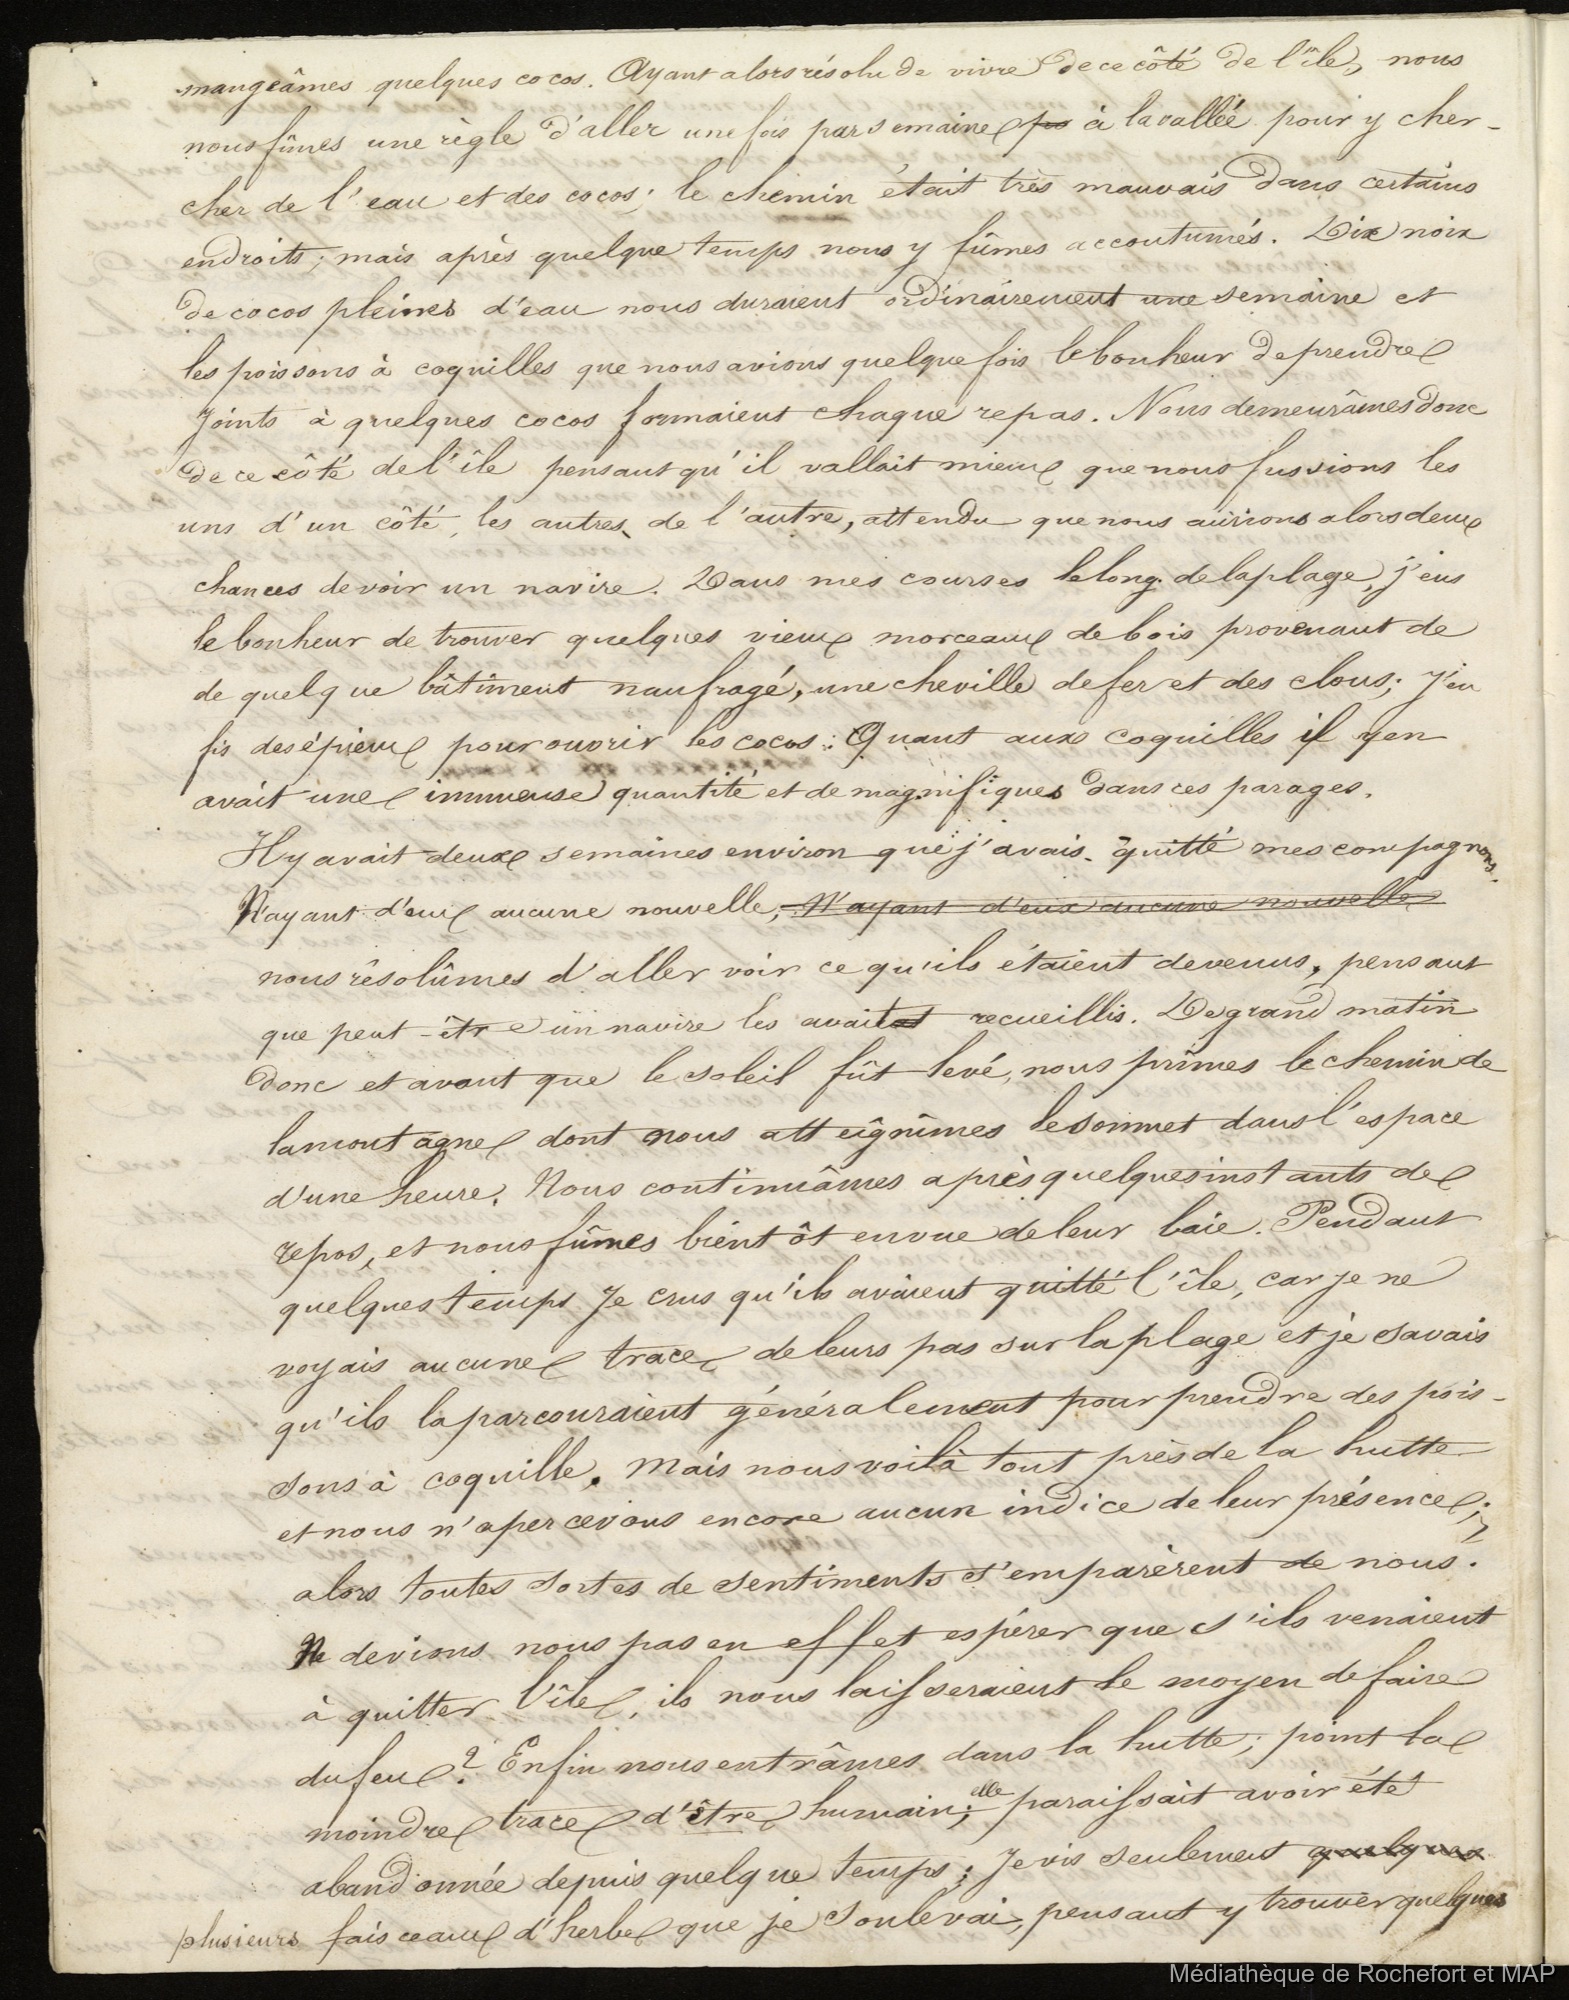 mangeâmes quelques cocos. Ayant alors résolu de vivre de ce côté de l'île, nous
nous fîmes une règle d'aller une fois par semaine à la vallée pour y cher-
cher de l'eau et des cocos; le chemin était très mauvais dans certains
endroits; mais après quelque temps nous y fûmes accoutumés. Dix noix
de cocos pleines d'eau nous duraient ordinairement une semaine et
les poissons à coquilles que nous avions quelque fois le bonheur de prendre
joints à quelques cocos formaient chaque repas. Nous demeurâmes donc
de ce côté de l'île pensant qu'il vallait mieux que nous fussions les
uns d'un côté, les autres de l'autre, attendu que nous aurions alors deux
chances de voir un navire. Dans mes courses le long de la plage, j'eus
le bonheur de trouver quelques vieux morceaux de bois provenant de
de quelque bâtiment naufragé, une cheville de fer et des clous; j'en
fis des épieux pour ouvrir les cocos: Quant aux coquilles il y en
avait une immense quantité et de magnifiques dans ces parages.
Il y avait deux semaines environ que j'avais quitté mes compagnons.
N'ayant d'eux aucune nouvelle, N'ayant d'eux aucune nouvelle
nous résolûmes d'aller voir ce qu'ils étaient devenus, pensant
que peut-être un navire les avait recueillis. De grand matin
donc et avant que le soleil fût levé, nous prîmes le chemin de
la montagne dont nous atteignîmes le sommet dans l'espace
d'une heure. Nous continuâmes après quelques instants de
repos, et nous fûmes bientôt en vue de leur baie. Pendant
quelques temps je crus qu'ils avaient quitté l'île, car je ne
voyais aucune trace de leurs pas sur la plage et je savais
qu'ils la parcouraient généralement pour prendre des pois-
sons à coquille. Mais nous voilà tout près de la hutte
et nous n'apercevons encore aucun indice de leur présence;
alors toutes sortes de sentiments s'emparèrent de nous.
Ne devions nous pas en effet espérer que s'ils venaient
à quitter l'île, ils nous laisseraient le moyen de faire
du feu? Enfin nous entrâmes dans la hutte; point la
moindre trace d'être humain; elle paraissait avoir été
abandonnée depuis quelque temps; Je vis seulement quelques
plusieurs faisceaux d'herbe que je soulevai, pensant y trouver quelques
Médiathèque de Rochefort et MAP